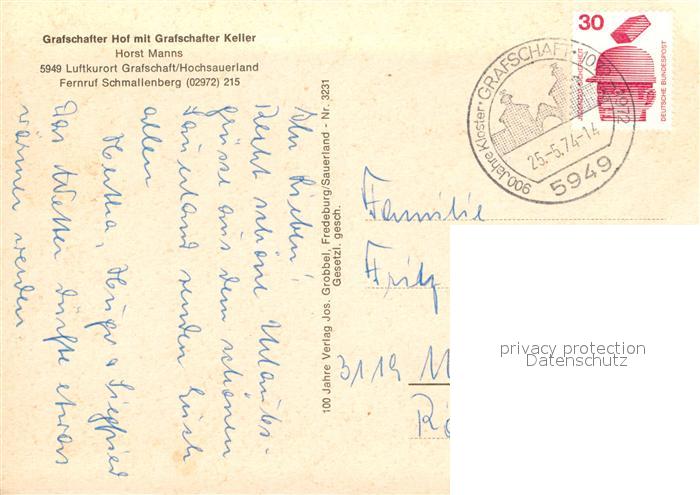 Grafschafter Hof mit Grafschafter Keller
Horst Manns
5949 Luftkurort Grafschaft/Hochsauerland
Fernruf Schmallenberg (02972) 215
Ihr Lieben!
Recht schöne Urlaubs-
grüsse aus dem schönen
Sauerland senden Euch
allen
Hertha, Hugo & Siegfried
Das Wetter dürfte etwas
wärmer werden
100 Jahre Verlag Jos. Grobbel, Fredeburg/Sauerland - Nr. 3231
Gesetzl. gesch.
900 Jahre Kloster · GRAFSCHAFT · 1072-1972
25.-5.74-14
5949
30
DEUTSCHE BUNDESPOST
Familie
Fritz
3119
privacy protection
Datenschutz